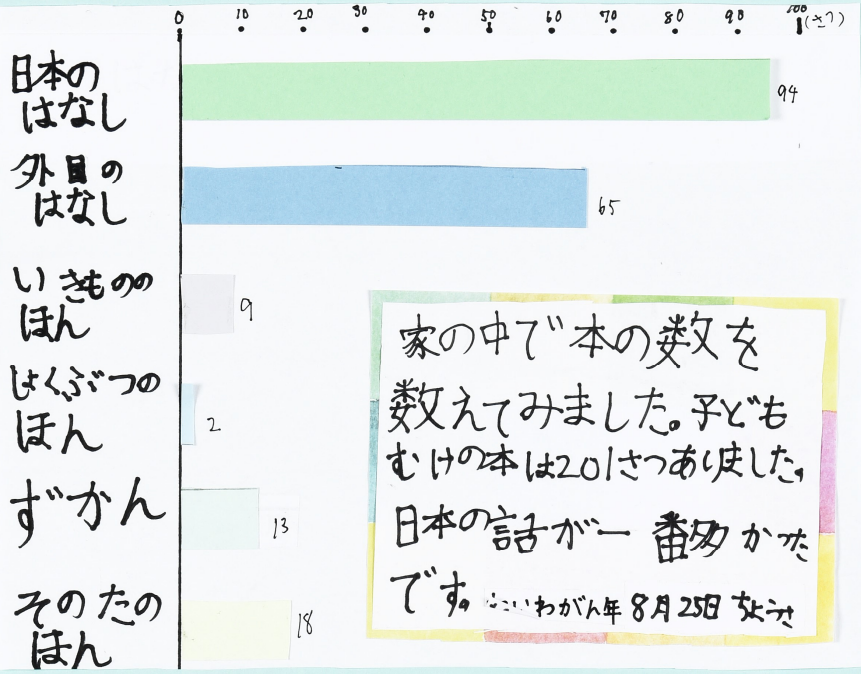 0 10 20 30 40 50 60 70 80 90 100 (さつ)
日本の
はなし
94
外国の
はなし
65
いきものの
ほん
9
しょくぶつの
ほん
2
ずかん
13
そのたの
ほん
18
家の中で本の数を
数えてみました。子ども
むけの本は201さつありました。
日本の話が一番多かった
です。れいわがん年8月25日ちょうさ